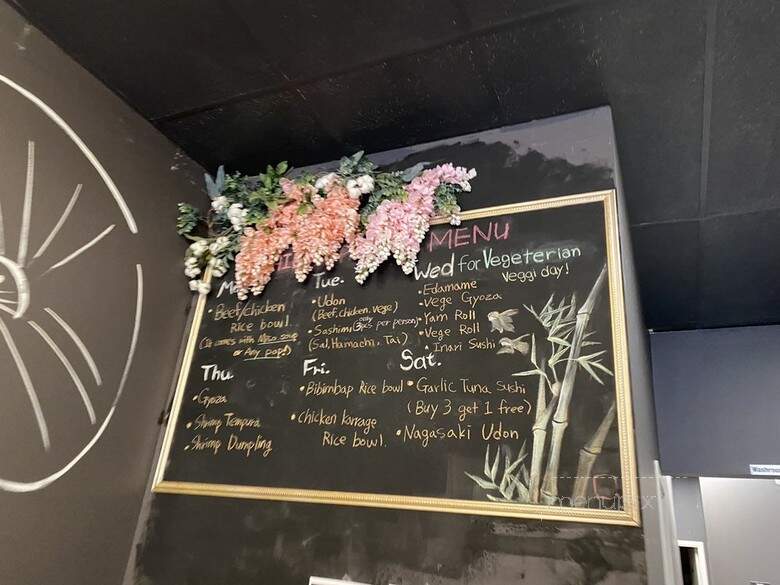 MENU
Mo
• Beef/chicken
Rice bowl.
(It comes with Miso soup
or Any pops)
Tue.
• Udon
(Beef, chicken, vege)
• Sashimi (only 3pcs per person)
(Sal, Hamachi, Tai)
Wed for Vegeterian
Veggi day!
• Edamame
• Vege Gyoza
• Yam Roll
• Vege Roll
• Inari Sushi
Thu.
• Gyoza
• Shrimp Tempura
• Shrimp Dumpling
Fri.
• Bibimbap Rice bowl
• chicken karrage
Rice bowl.
Sat.
• Garlic Tuna Sushi
(Buy 3 get 1 free)
• Nagasaki Udon
Washroo